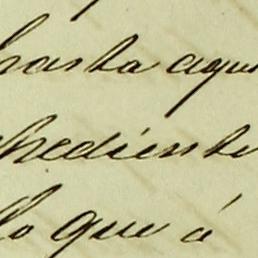 hasta aqui
pediente
lo que á